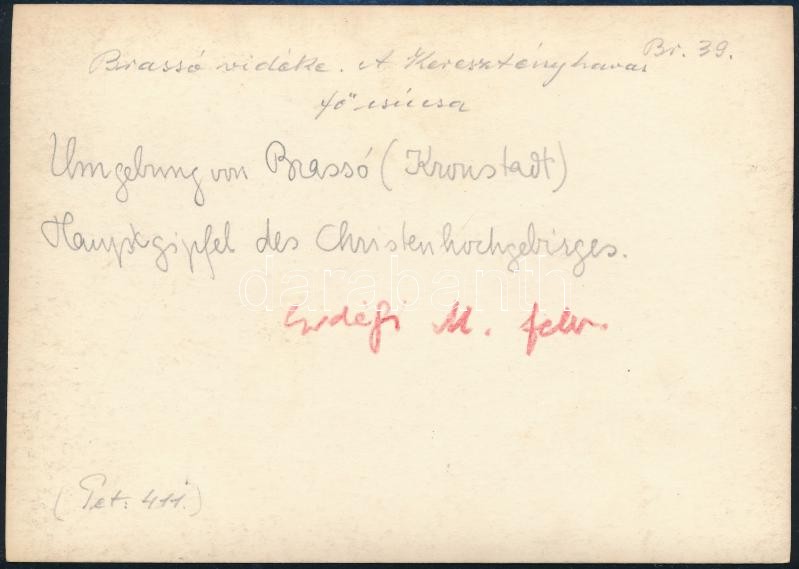 Br. 39.
Brassó vidéke. A Keresztényhavas
fő csúcsa
Umgebung von Brassó (Kronstadt)
Hauptgipfel des Christenhochgebirges.
darabanth
Erdélyi M. felv.
(Tet. 411.)